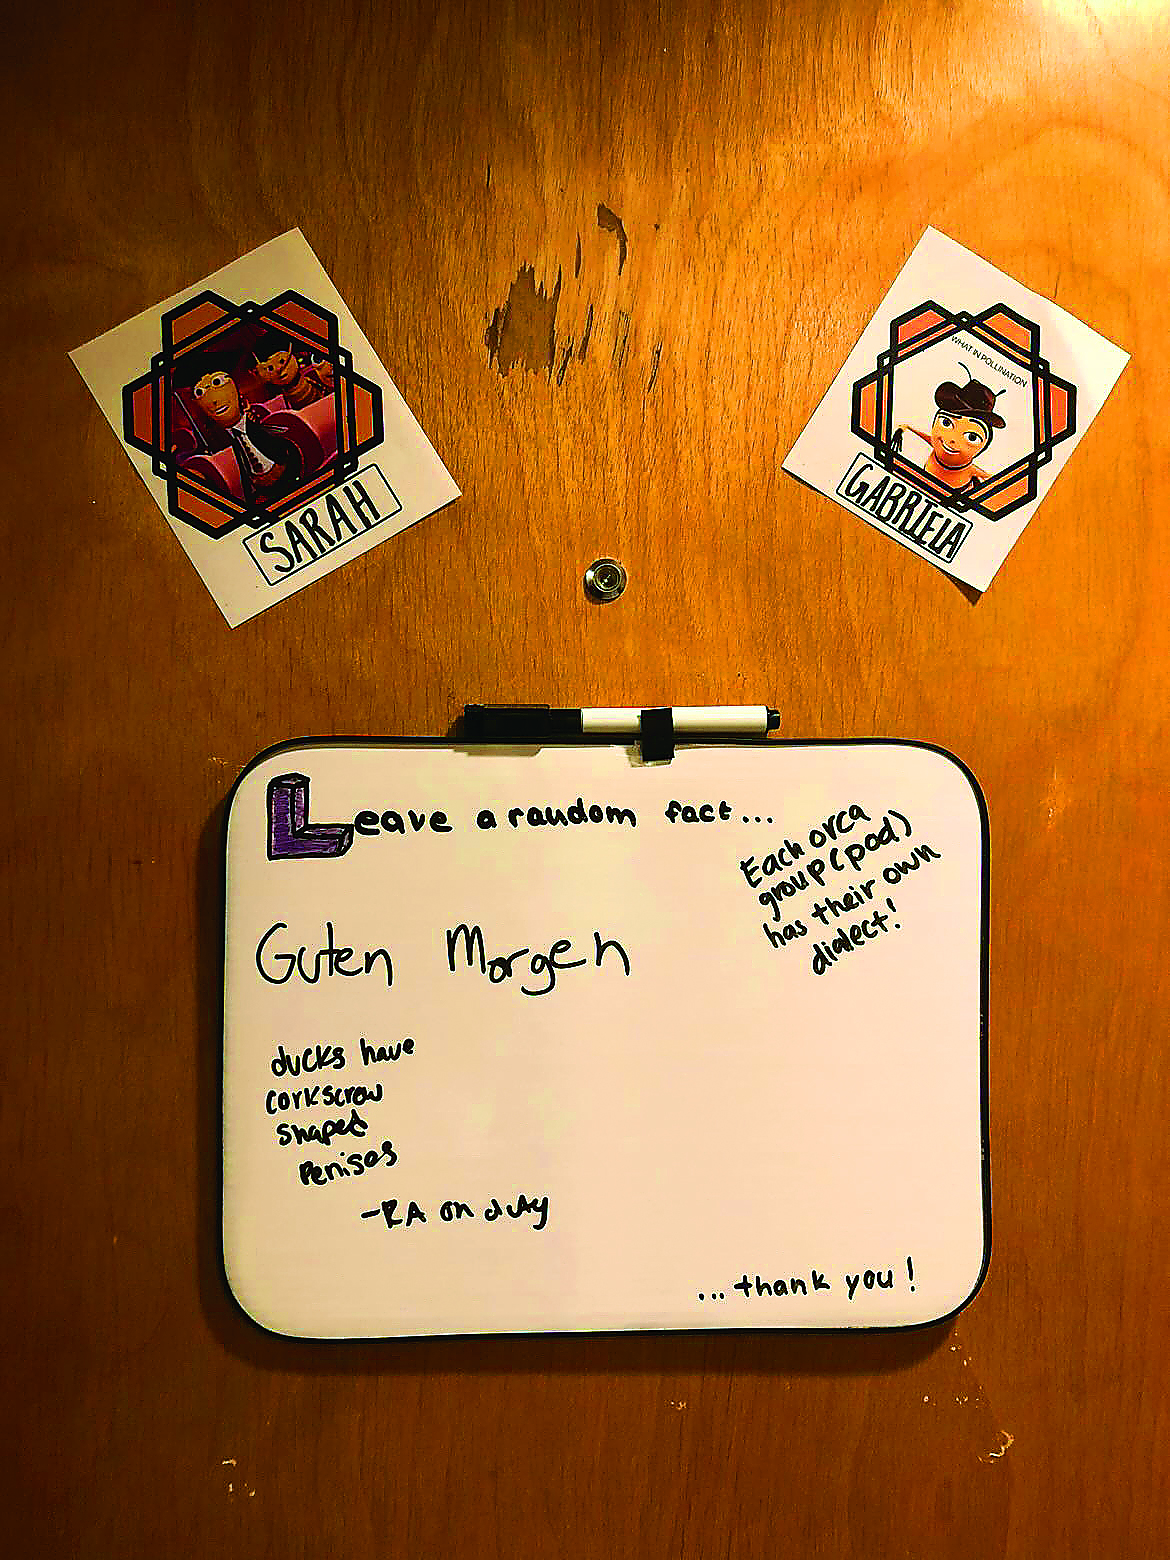 WHAT IN POLLINATION
SARAH
GABRIELA
Leave a random fact...
Each orca
group (pod)
has their own
dialect!
Guten Morgen
ducks have
corkscrew
shaped
Penises
-RA on duty
...thank you!